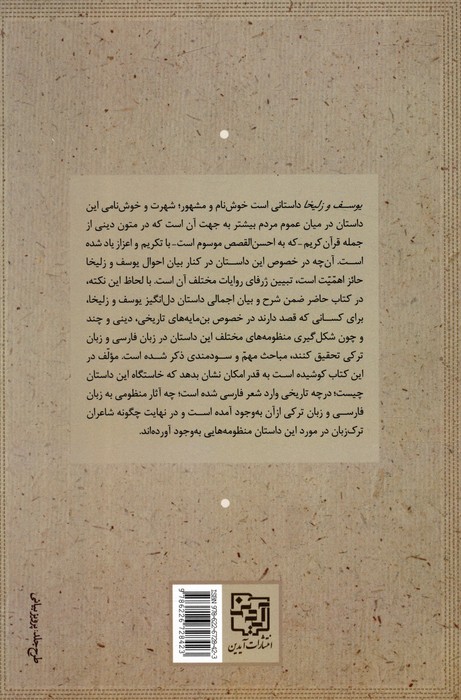 یوسف و زلیخا داستانی است خوش‌نام و مشهور؛ شهرت و خوش‌نامی این
داستان در میان عموم مردم بیشتر به جهت آن است که در متون دینی از
جمله قرآن کریم -که به احسن‌القصص موسوم است- با تکریم و اعزاز یاد شده
است. آن‌چه در خصوص این داستان در کنار بیان احوال یوسف و زلیخا
حائز اهمّیّت است، تبیین ژرفای روایات مختلف آن است. با لحاظ این نکته،
در کتاب حاضر ضمن شرح و بیان اجمالی داستان دل‌انگیز یوسف و زلیخا،
برای کسانی که قصد دارند در خصوص بن‌مایه‌های تاریخی، دینی و چند
و چون شکل‌گیری منظومه‌های مختلف این داستان در زبان فارسی و زبان
ترکی تحقیق کنند، مباحث مهمّ و سودمندی ذکر شده است. مؤلّف در
این کتاب کوشیده است به قدر امکان نشان بدهد که خاستگاه این داستان
چیست؛ درچه تاریخی وارد شعر فارسی شده است؛ چه آثار منظومی به زبان
فارسی و زبان ترکی ازآن به‌وجود آمده است و در نهایت چگونه شاعران
ترک‌زبان در مورد این داستان منظومه‌هایی به‌وجود آورده‌اند.
انتشارات آیدین
ISBN: 978-622-6728-42-3
9786226728423
طرح جلد: پرویز بیانی